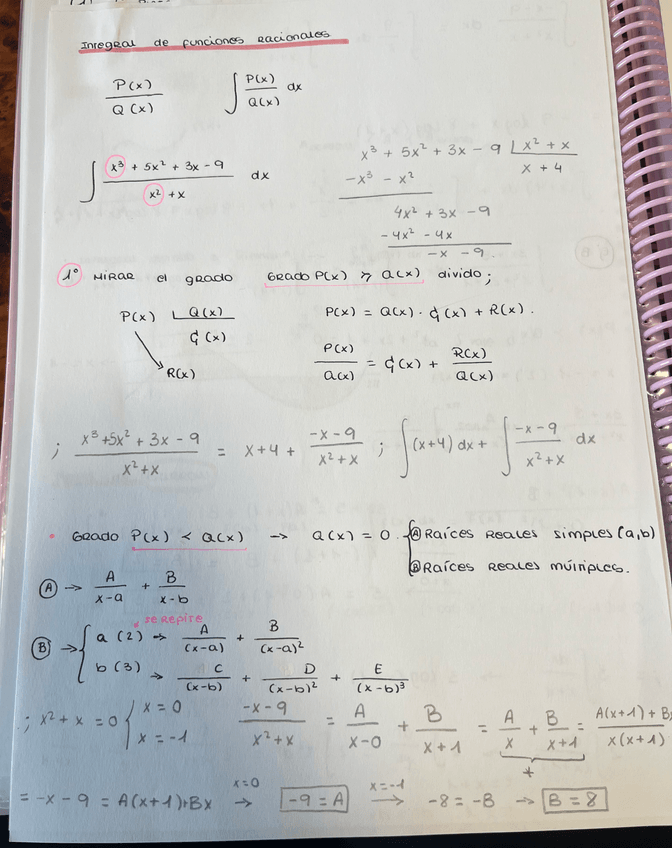 Integral de funciones racionales
P(x)/Q(x)    ∫ P(x)/Q(x) dx
∫ (x³ + 5x² + 3x - 9)/(x² + x) dx
x³ + 5x² + 3x - 9 | x² + x
-x³ - x²    x + 4
4x² + 3x - 9
-4x² - 4x
-x - 9
1° Mirar el grado    Grado P(x) ⩾ Q(x) divido;
P(x) | Q(x)    P(x) = Q(x) · q(x) + R(x).
q(x)
R(x)    P(x)/Q(x) = q(x) + R(x)/Q(x)
; (x³ + 5x² + 3x - 9)/(x² + x) = x + 4 + (-x - 9)/(x² + x) ; ∫(x+4) dx + ∫ (-x - 9)/(x² + x) dx
• Grado P(x) < Q(x) → Q(x) = 0. { A Raíces reales simples (a,b)
B Raíces reales múltiples.
A → A/(x-a) + B/(x-b)
se repite
B → { a (2) → A/(x-a) + B/(x-a)²
b (3) → C/(x-b) + D/(x-b)² + E/(x-b)³
; x² + x = 0 { x = 0    (-x - 9)/(x² + x) = A/(x-0) + B/(x+1) = A/x + B/(x+1) = (A(x+1) + B)/(x(x+1))
x = -1
+
= -x - 9 = A(x+1)+Bx →x=0 -9 = A →x=-1 -8 = -B → B = 8